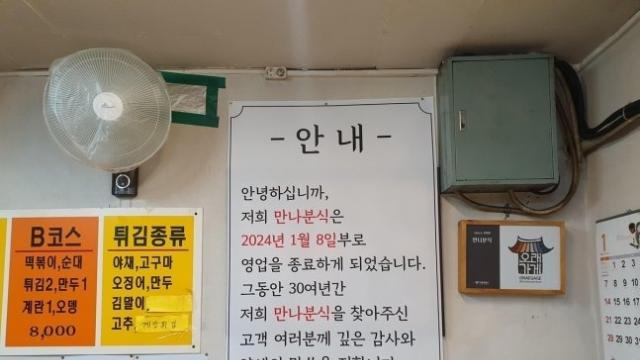 - 안 내 -
안녕하십니까,
저희 만나분식은
2024년 1월 8일부로
영업을 종료하게 되었습니다.
그동안 30여년간
저희 만나분식을 찾아주신
고객 여러분께 깊은 감사와
B코스
떡볶이,순대
튀김2,만두1
계란1,오뎅
8,000
튀김종류
야채,고구마
오징어,만두
김말이
고추
만나분식
오래가게
1
7 8 9
14 15 16
21 22 23
28 29 30